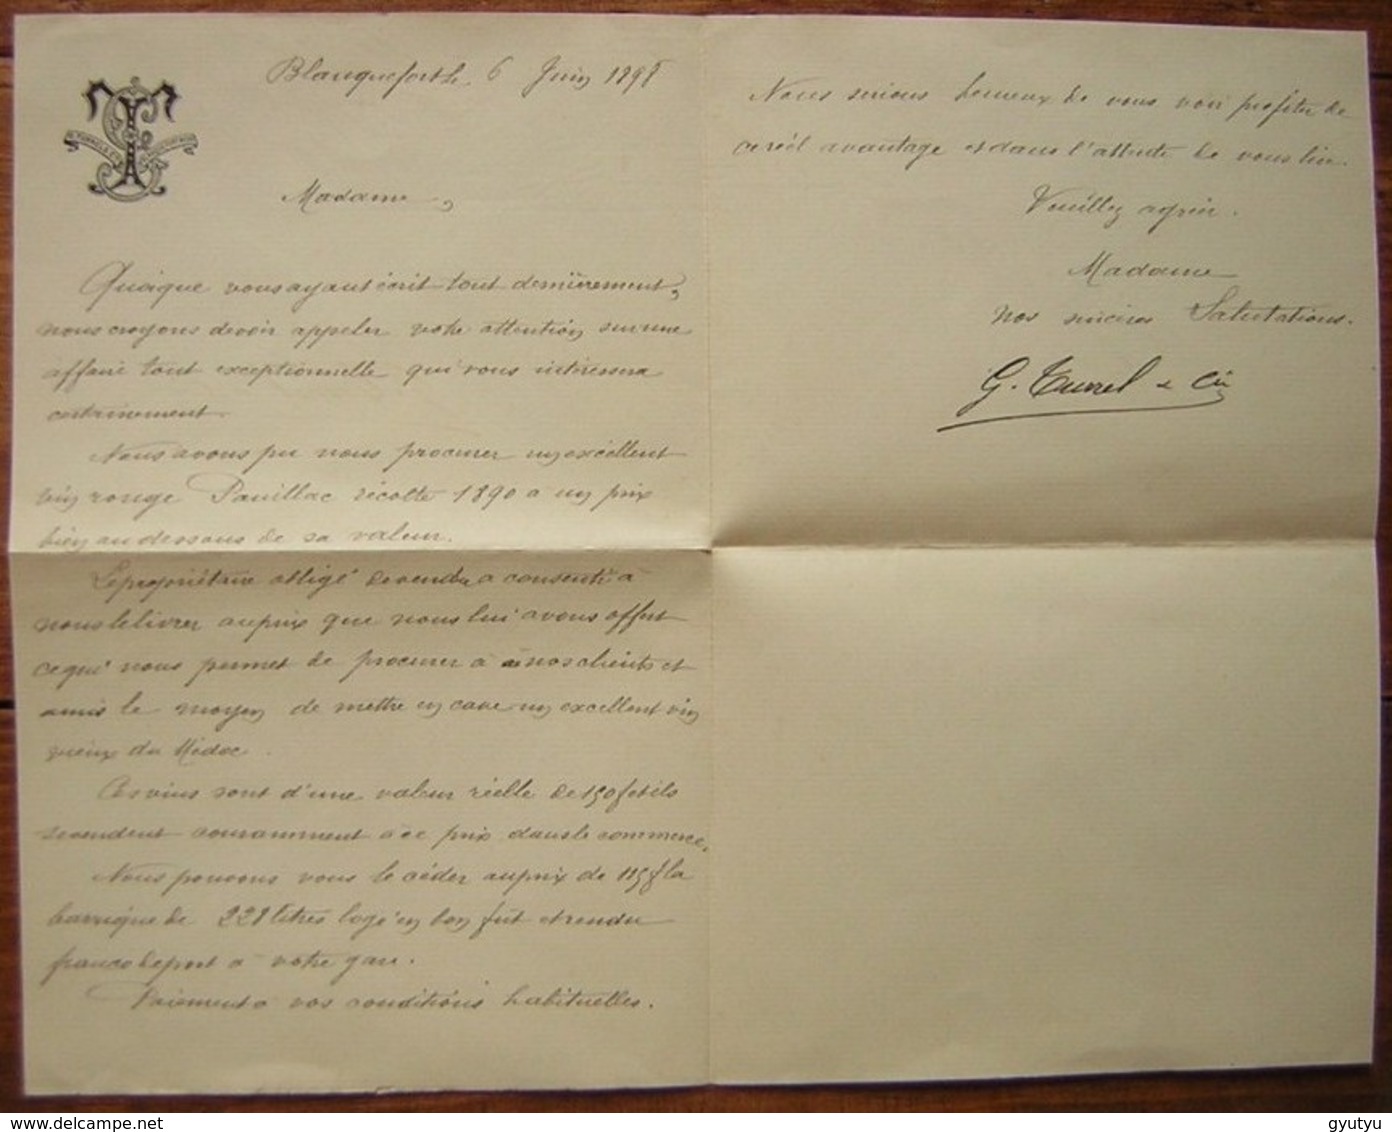 Blanquefort le 6 Juin 1898
Madame,
Quoique vous ayant écrit tout dernièrement,
nous croyons devoir appeler votre attention sur une
affaire tout exceptionnelle qui vous intéressera
certainement.
Nous avons pu nous procurer un excellent
vin rouge Pauillac récolte 1890 à un prix
bien au dessous de sa valeur.
Le propriétaire obligé de vendre a consenti à
nous le livrer au prix que nous lui avons offert
ce qui nous permet de procurer à nos clients et
amis le moyen de mettre en cave un excellent vin
vieux du Médoc.
Ces vins sont d'une valeur réelle de 150f et ils
se vendent couramment à ce prix dans le commerce.
Nous pouvons vous le céder au prix de 115f la
barrique de 228 litres logé en bon fût et rendu
franco de port à votre gare.
Paiement à vos conditions habituelles.
Nous serions heureux de vous voir profiter de
ce réel avantage et dans l'attente de vous lire
Veuillez agréer.
Madame
nos sincères Salutations.
G. Turrel & Cie
gyutyu